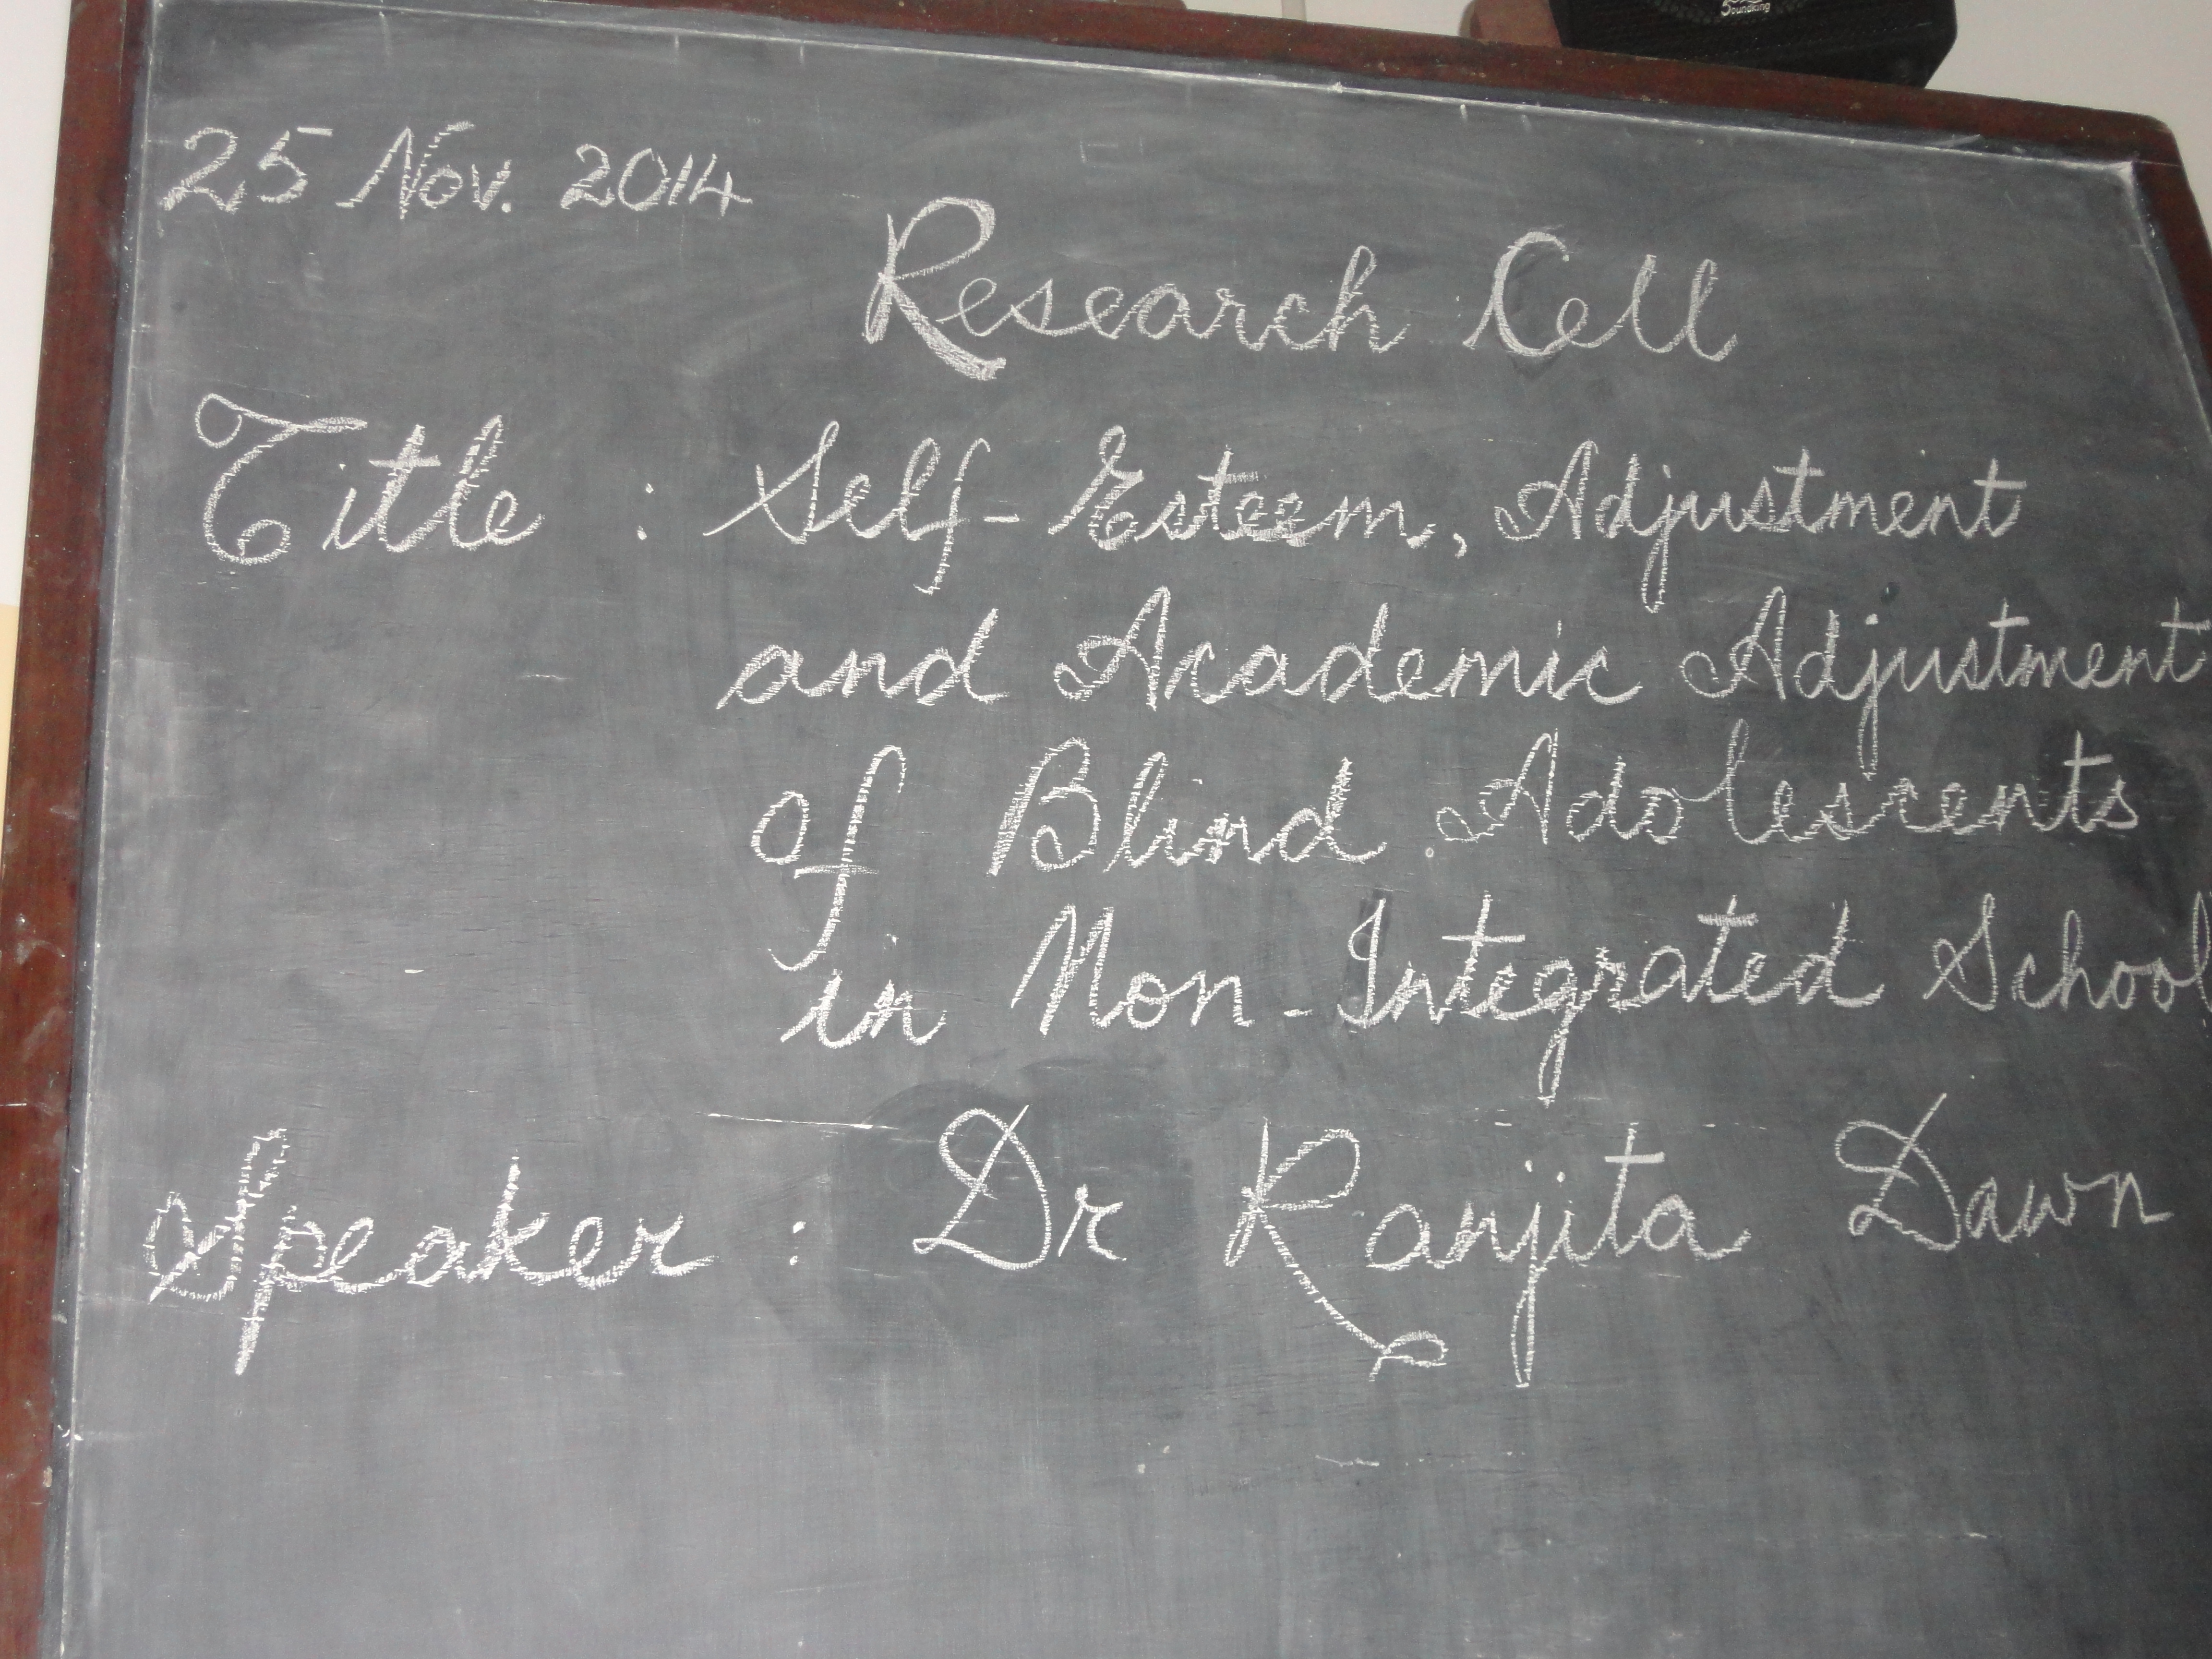 Soundking
25 Nov. 2014
Research Cell
Title : Self-Esteem, Adjustment
and Academic Adjustment
of Blind Adolescents
in Non-Integrated School
Speaker : Dr Ranjita Dawn